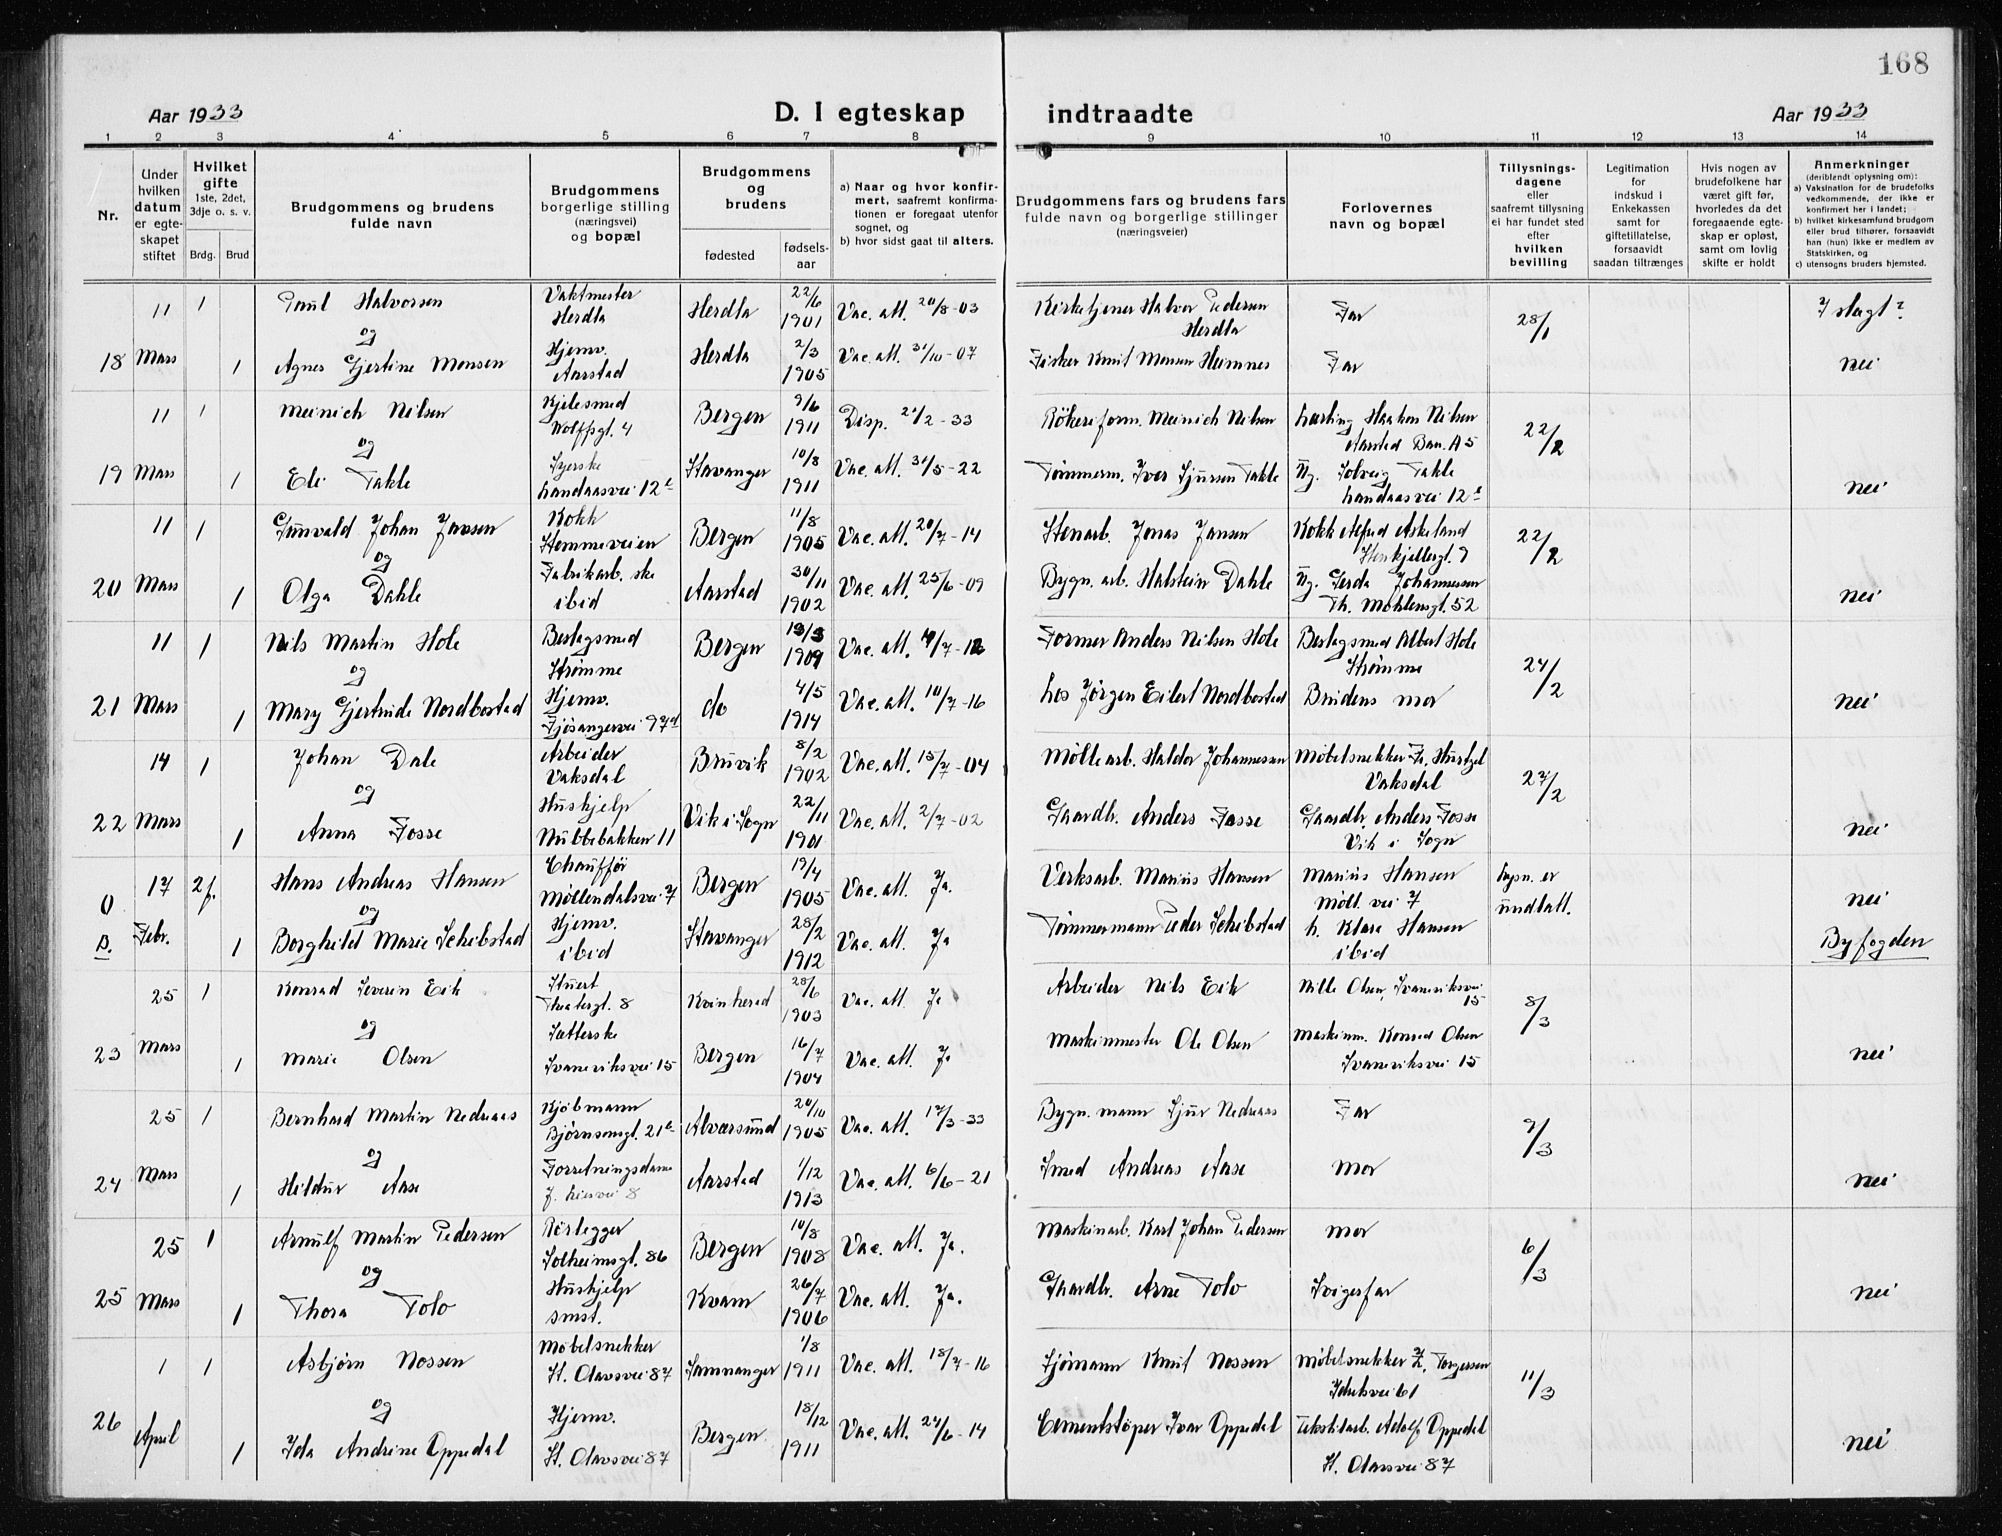 168
Aar 1933
D. I egteskap
indtraadte
Aar 1933
1 2 3 4 5 6 7 8 9 10 11 12 13 14
Nr.
Under
hvilken
datum
er egte-
skapet
stiftet
Hvilket
gifte
1ste, 2det,
3dje o. s. v.
Brdg. Brud
Brudgommens og brudens
fulde navn
Brudgommens
borgerlige stilling
(næringsvei)
og bopæl
Brudgommens
og
brudens
fødested
fødsels-
aar
a) Naar og hvor konfir-
mert, saafremt konfirma-
tionen er foregaat utenfor
sognet, og
b) hvor sidst gaat til alters.
Brudgommens fars og brudens fars
fulde navn og borgerlige stillinger
(næringsveier)
Forlovernes
navn og bopæl
Tillysnings-
dagene
eller
saafremt tillysning
ei har fundet sted
efter
hvilken
bevilling
Legitimation
for
indskud i
Enkekassen
samt for
giftetillatelse,
forsaavidt
saadan tiltrænges
Hvis nogen av
brudefolkene har
været gift før,
hvorledes da det
foregaaende egte-
skap er opløst,
samt om lovlig
skifte er holdt
Anmerkninger
(deriblandt oplysning om):
a) Vaksination for de brudefolks
vedkommende, der ikke er
konfirmert her i landet;
b) hvilket kirkesamfund brudgom
eller brud tilhører, forsaavidt
han (hun) ikke er medlem av
Statskirken, og
c) utensogns bruders hjemsted.
11 1 Paul Halvorsen Vaktmester Herdla Herdla 22/6 1901 Vac. att. 20/8-03 Kirketjener Halvor Pedersen Herdla Far 28/1 I slagt?
og
18 Mars 1 Agnes Gjertine Monsen Hjemv. Aarstad Herdla 2/3 1905 Vac. att. 31/10-07 Fisker Knut Monsen Heimnes Far nei
11 1 Meinich Nilsen Kjelesmed Wolffsgt. 4 Bergen 9/6 1911 Disp. 21/2-33 Rökeriform. Meinich Nilsen Lærling Haakon Nilsen Aarstad Ban. A5 22/2
og
19 Mars 1 Eli Takle Syerske Landaasvei 12e Stavanger 10/8 1911 Vac. att. 31/5-22 Tømmerm. Iver Sjursen Takle Ug. Solveig Takle Landaasvei 12e nei
11 1 Gunvald Johan Jansen Kokk Stemmeveien Bergen 11/8 1905 Vac. att. 20/7-14 Stenarb. Jonas Jansen Kokk Alfred Askeland Stenkjellergt. 9 22/2
og
20 Mars 1 Olga Dahle Fabrikarb. ske ibid Aarstad 30/11 1902 Vac. att. 25/6-09 Bygn. arb. Halstein Dahle Ug. Gerda Johannessen Th. Møhlensgt. 52 nei
11 1 Nils Martin Hole Beslagsmed Strømme Bergen 19/3 1909 Vac. att. 4/7-12 Former Anders Nilsen Hole Beslagsmed Albert Hole Strømme 24/2
og
21 Mars 1 Mary Gjertrude Nordbostad Hjemv. Fjøsangervei 97d do 4/5 1914 Vac. att. 10/7-16 Los Jörgen Eilert Nordbostad Brudens mor nei
14 1 Johan Dale Arbeider Vaksdal Bruvik 8/2 1902 Vac. att. 15/7-04 Møllearb. Haldor Johannessen Møbelsnekker Fr. Hurtzel Vaksdal 27/2
og
22 Mars 1 Anna Fosse Huskjelp Nubbebakken 11 Vik i Sogn 22/11 1901 Vac. att. 2/7-02 Gaardbr. Anders Fosse Gaardbr. Anders Fosse Vik i Sogn nei
0 17 2f. Hans Andreas Hansen Chauffør Møllendalsvei 7 Bergen 19/4 1905 Vac. att. Ja. Verksarb. Marius Hansen Marius Hansen Møll. vei 7 Lysn. er undlatt. nei
og
B. Febr. 1 Borghild Marie Schibstad Hjemv. ibid Stavanger 28/2 1912 Vac. att. Ja Tømmermann Peder Schibstad h. Klara Hansen ibid Byfogden
25 1 Konrad Severin Eik Stuert Theatergt. 8 Kvinherad 28/6 1903 Vac. att. Ja Arbeider Nils Eik Nille Olsen, Svaneviksvei 15 8/3
og
23 Mars 1 Marie Olsen Sætterske Svaneviksvei 15 Bergen 16/7 1904 Vac. att. Ja Maskinmester Ole Olsen Maskinm. Konrad Olsen Svaneviksvei 15 nei
25 1 Bernhard Martin Nedraas Kjøbmann Bjørnsonsgt. 21e Alversund 20/10 1905 Vac. att. 17/3-33 Bygn. mann Sjur Nedraas Far 9/3
og
24 Mars 1 Hildur Aase Forretningsdame J. Liesvei 8 Aarstad 1/12 1913 Vac. att. 6/6-21 Smed Andreas Aase mor nei
25 1 Arnulf Martin Pedersen Rørlegger Solheimsgt. 86 Bergen 10/8 1908 Vac. att. Ja. Maskinarb. Karl Johan Pedersen mor 6/3
og
25 Mars 1 Thora Tolo Huskjelp smst. Kvam 26/7 1906 Vac. att. Ja. Gaardbr. Arne Tolo Svigerfar nei
1 1 Asbjørn Nossen Møbelsnekker St. Olavsvei 87 Samnanger 1/8 1911 Vac. att. 18/7-16 Sjømann Knut Nossen Møbelsnekker Z. Torgersen Ibsensvei 61 11/3
og
26 April 1 Ida Andrine Oppedal Hjemv. St. Olavsvei 87 Bergen 18/12 1911 Vac. att. 24/6-14 Cementstøper Ivar Oppedal Tekstilarb. Adolf Oppedal St. Olavsvei 87 nei